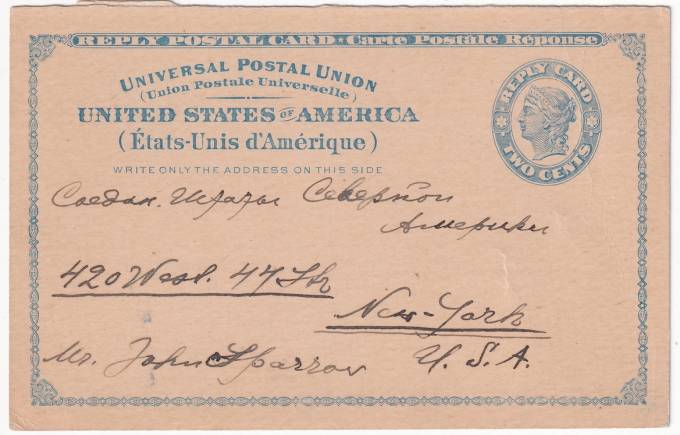 REPLY POSTAL CARD · Carte Postale Réponse
UNIVERSAL POSTAL UNION
(Union Postale Universelle)
UNITED STATES OF AMERICA
(États-Unis d'Amérique)
WRITE ONLY THE ADDRESS ON THIS SIDE
REPLY CARD
TWO CENTS
Соедин. Штаты Северной
Америки
420 West. 47 Str
New-York
Mr. John Sparrow U. S. A.